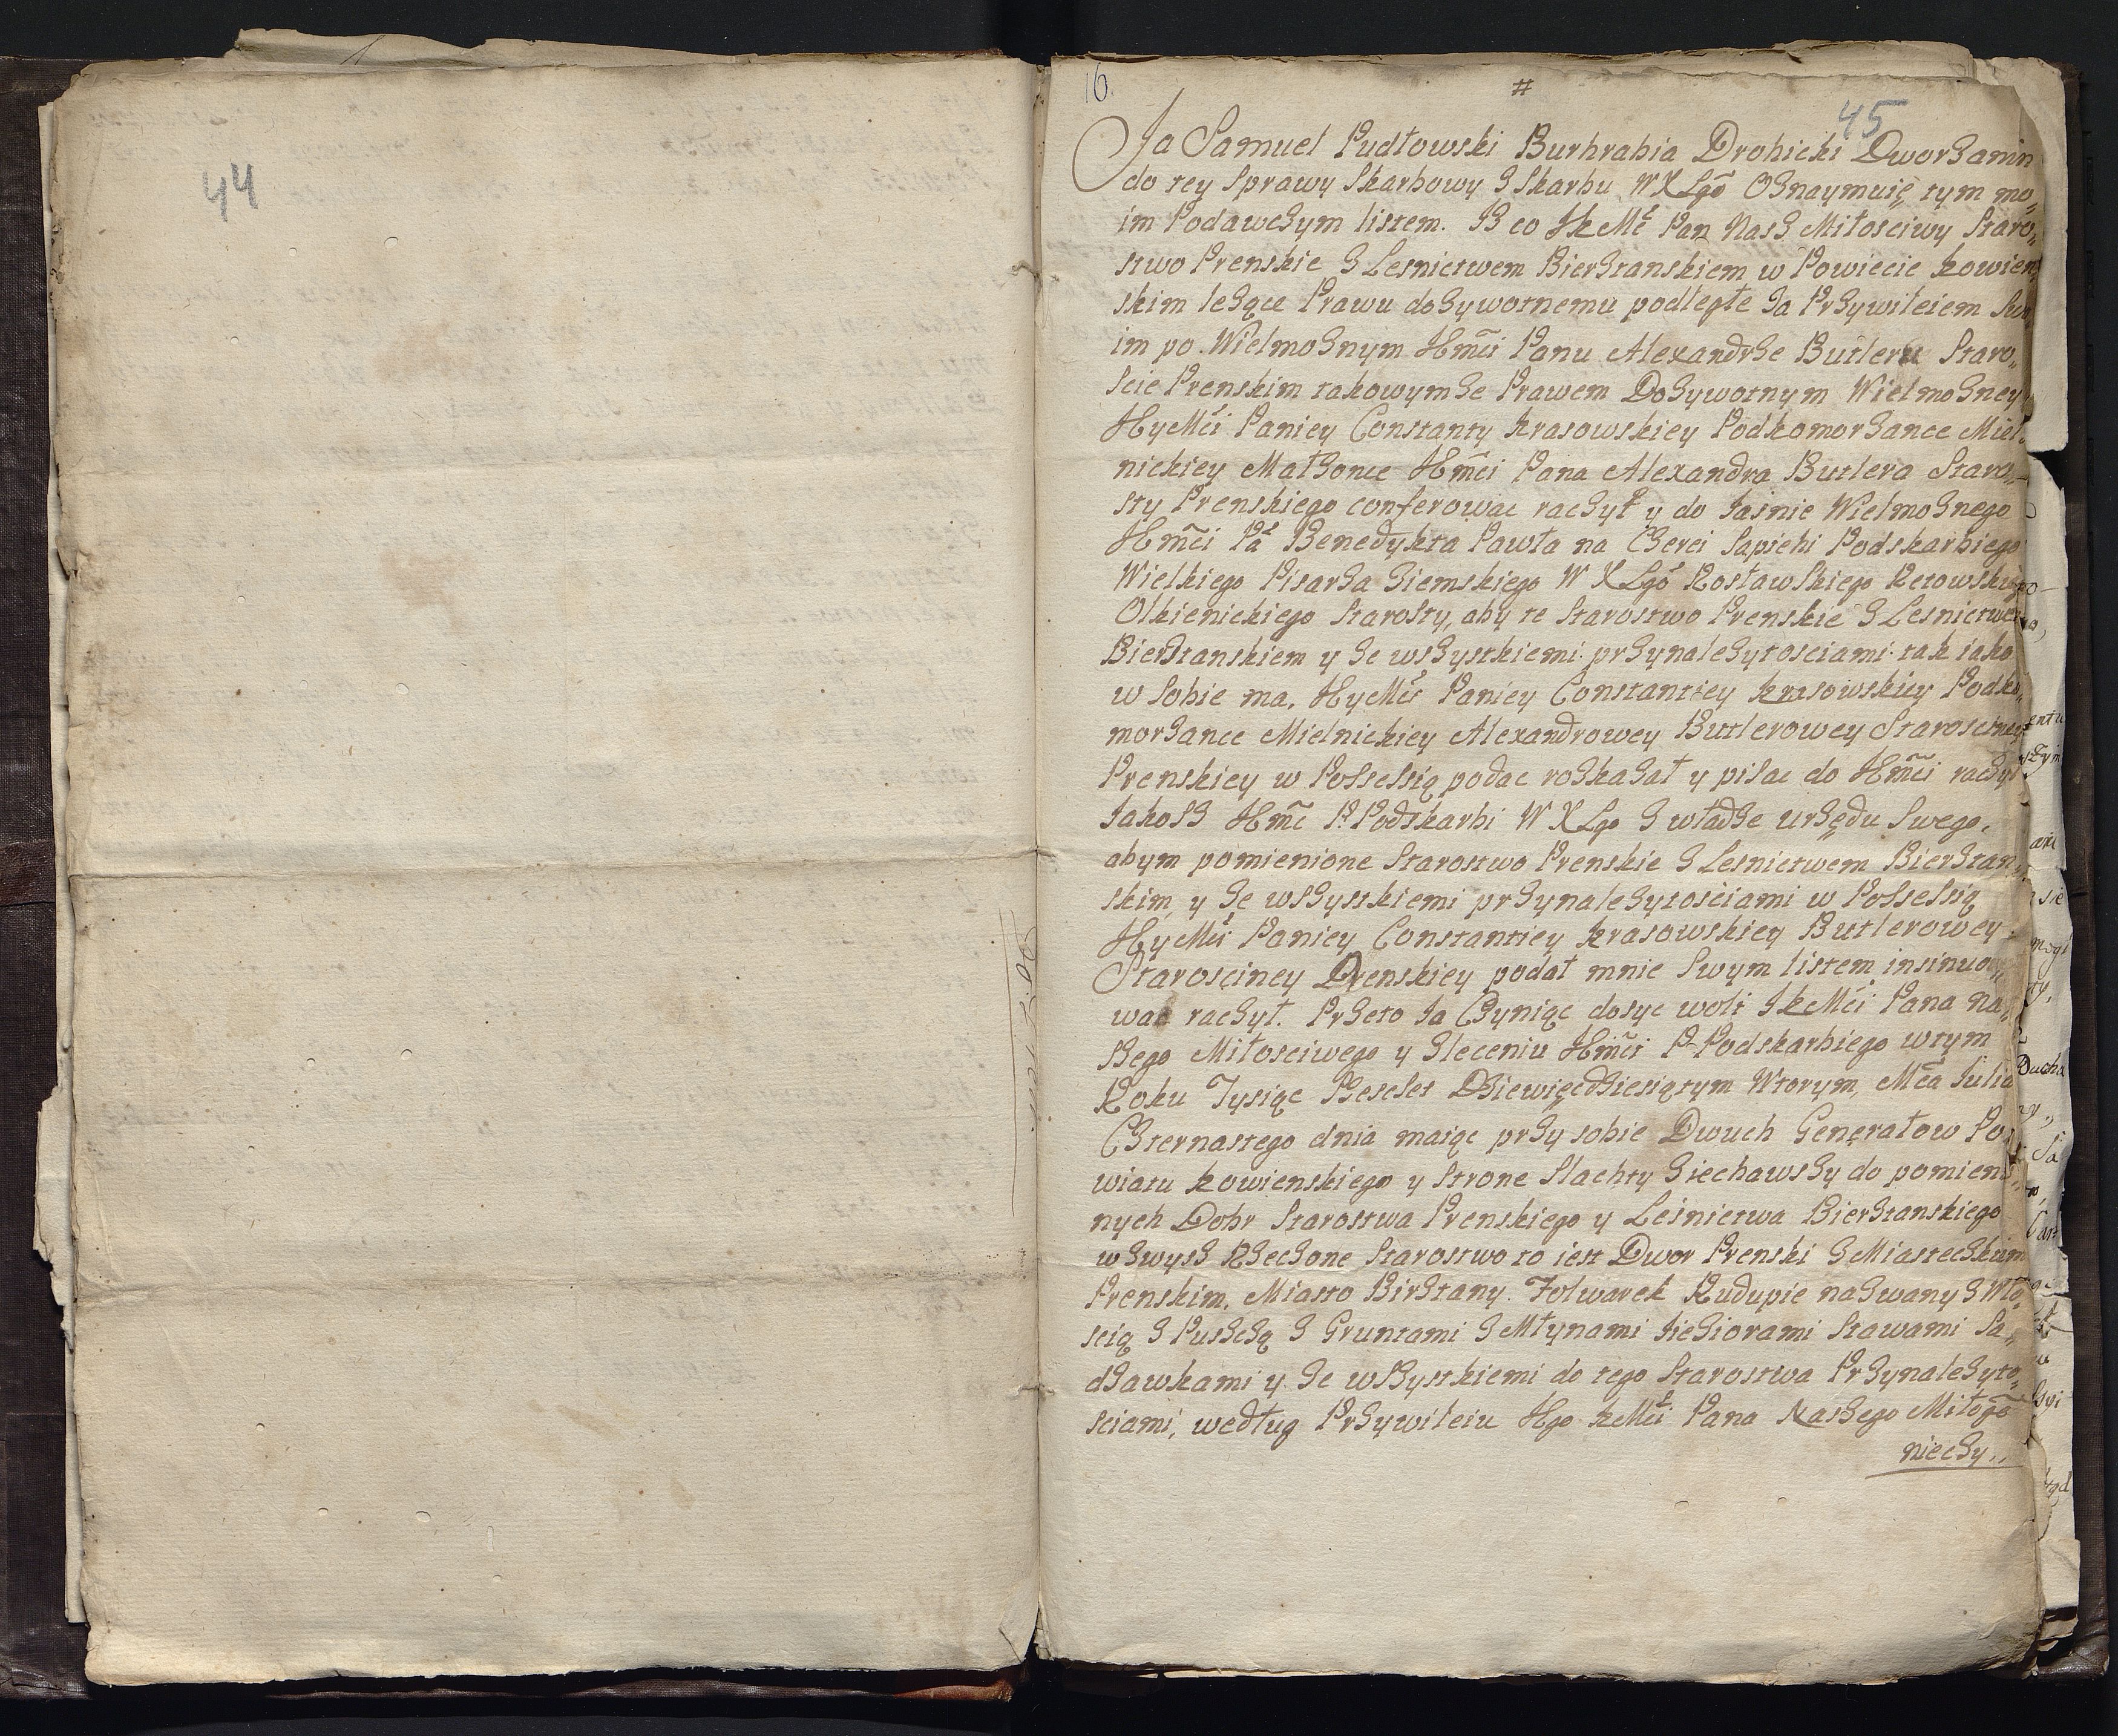 44
16.
#
45
Ja Samuel Pudłowski Burhrabia Drohicki Dworzanin
do tey Sprawy Skarbowy z Skarbu W X Lgo Oznaymuię tym mo„
im Podawczym listem. Iż co Jk Mć Pan Nasz Miłosciwy Staro„
stwo Prenskie z Lesnictwem Birsztanskiem w Powiecie Kowien„
skim leżące Prawu dożywotnemu podległe za Przywileiem Swo„
im po Wielmożnym Jmći Panu Alexandrze Butleru Staro„
scie Prenskim takowymże Prawem Dożywotnym Wielmożney
JeyMći Paniey Constanty Krasowskiey Podkomorzance Miel„
nickiey Małżonce Jmći Pana Alexandra Butlera Staro„
sty Prenskiego conferowac raczył y do Jaśnie Wielmożnego
Jmći Pa Benedykta Pawła na Czerei Sapiehi Podskarbiego
Wielkiego Pisarza Ziemskiego W X Lgo Rosławskiego Retowskiego
Olkienickiego Starosty, aby te Starostwo Prenskie z Lesnictwem
Bierztanskiem y ze wszystkiemi przynależytosciami tak iako
w sobie ma, JeyMći Paniey Constantiey Krasowskiey Podko„
morzance Mielnickiey Alexandrowey Butlerowey Starosciney
Prenskiey w Possessią podac rozkazał y pisac do Jmći raczył
Jakosz Jmć P. Podskarbi W X Lgo z władze urzędu Swego,
abym pomienione Starostwo Prenskie z Lesnictwem Bierztan„
skim y ze wszystkiemi przynależytosciami w Possessią
JeyMći Paniey Constantiey Krasowskiey Butlerowey
Starosciney Prenskiey podał mnie Swym listem insinuo„
wac raczył. Przeto Ja Czyniąc dosyc woli JkMći Pana Na„
szego Miłosciwego y zleceniu Jmći P. Podskarbiego w tym
Roku Tysiąc Szescset Dziewięcdziesiątym Wtorym, Mca Julia
Czternastego dnia maiąc przy sobie Dwuch Generałow Po„
wiatu Kowienskiego y Strone Slachty Ziechawszy do pomienio„
nych Dobr Starostwa Prenskiego y Leśnictwa Bierztanskiego
wzwysz Rzeczone Starostwo to iest Dwor Prenski z Miasteczkiem
Prenskim, Miasto Birztany Folwarek Rudupie nazwany z Wło„
scią z Puszczą z Gruntami z Młynami Jieziorami Stawami Sa„
dzawkami y ze wszystkiemi do tego Starostwa Przynależyto„
sciami, według Przywileiu Jgo KMći Pana Naszego Miłogo
nieczy„